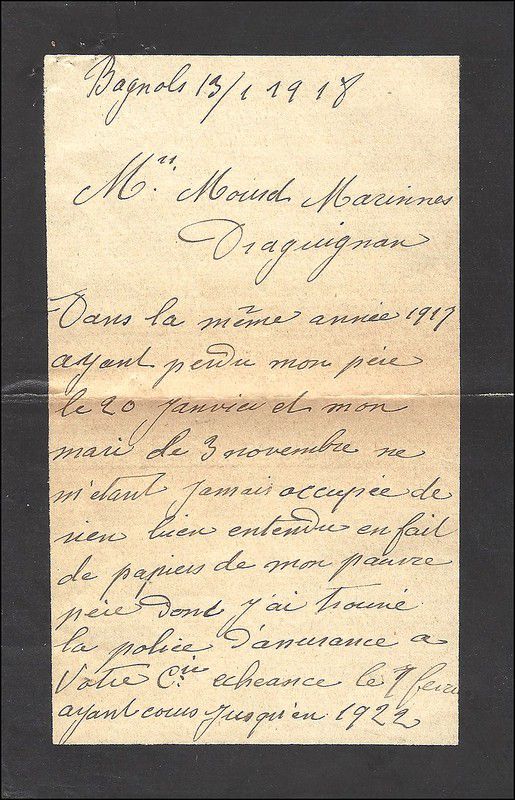 Bagnols 13/1 1918
Mrs. Marinnes
Draguignan
Dans la même année 1917
ayant perdu mon père
le 20 Janvier et mon
mari le 3 novembre ne
m'étant Jamais occupée de
rien bien entendu en fait
de papiers de mon pauvre
père dont J'ai trouvé
la police d'assurance a
Votre Cie echeance le 7
ayant cours Jusqu'en 1922